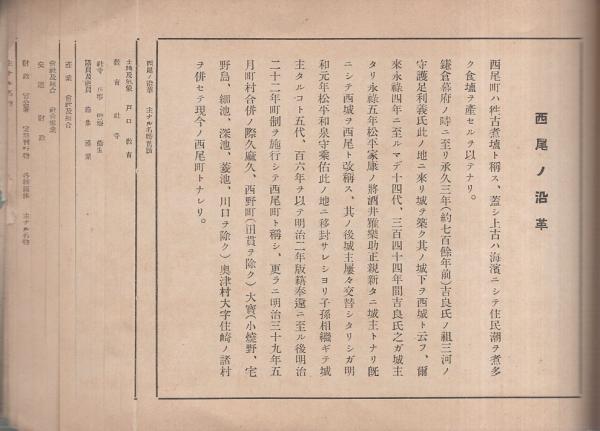 西尾ノ沿革
西尾町ハ往古煮墳ト稱ス、蓋シ上古ハ海濱ニシテ住民潮ヲ煮多
ク食塩ヲ產セルヲ以テナリ。
鎌倉幕府ノ時ニ至リ承久三年(約七百餘年前)吉良氏ノ祖三河ノ
守護足利義氏此ノ地ニ來リ城ヲ築ク其ノ城下ヲ西城ト云フ、爾
來永祿四年ニ至ルマデ十四代、三百四十四年間吉良氏之ガ城主
タリ永祿五年松平家康ノ將酒井雅樂助正親新タニ城主トナリ旣
ニシテ西城ヲ西尾ト改稱ス、其ノ後城主屢々交替シタリシガ明
和元年松平和泉守乘佑此ノ地ニ移封サレシヨリ子孫相繼ギテ城
主タルコト五代、百六年ヲ以テ明治二年版籍奉還ニ至ル後明治
二十二年町制ヲ施行シテ西尾町ト稱シ、更ラニ明治三十九年五
月町村合併ノ際久麻久、西野町(田貫ヲ除ク)大寶(小燒野、宅
野島、細池、深池、菱池、川口ヲ除ク)奧津村大字住崎ノ諸村
ヲ併セテ現今ノ西尾町トナレリ。
西尾ノ沿革 主ナル名勝舊蹟
土地及氣象 戶口 教育
教育 社寺
社寺 兵事 衛生
議員及吏員 農業
產業 會社及組合
會社及組合 社會事業
交通 財政
財政 官公署